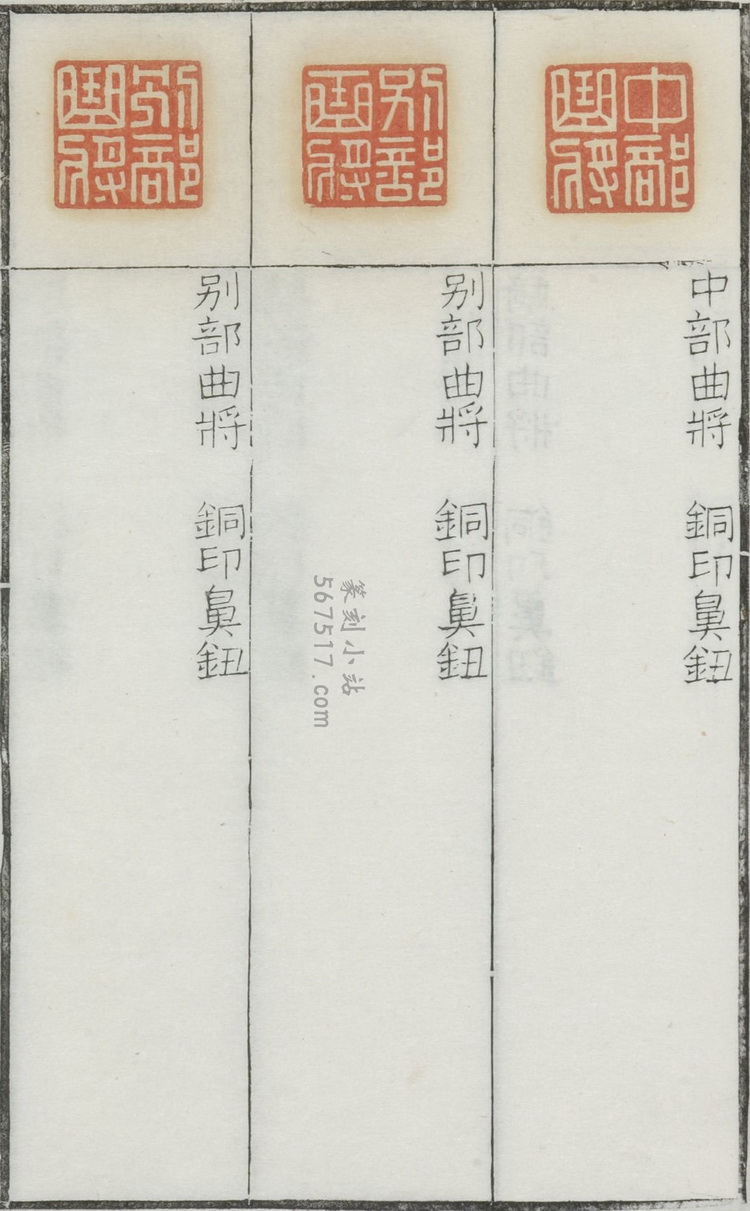 中部曲將
中部曲將 銅印鼻鈕
別部曲將
别部曲將 銅印鼻鈕
別部曲將
别部曲將 銅印鼻鈕
篆刻小站
567517.com